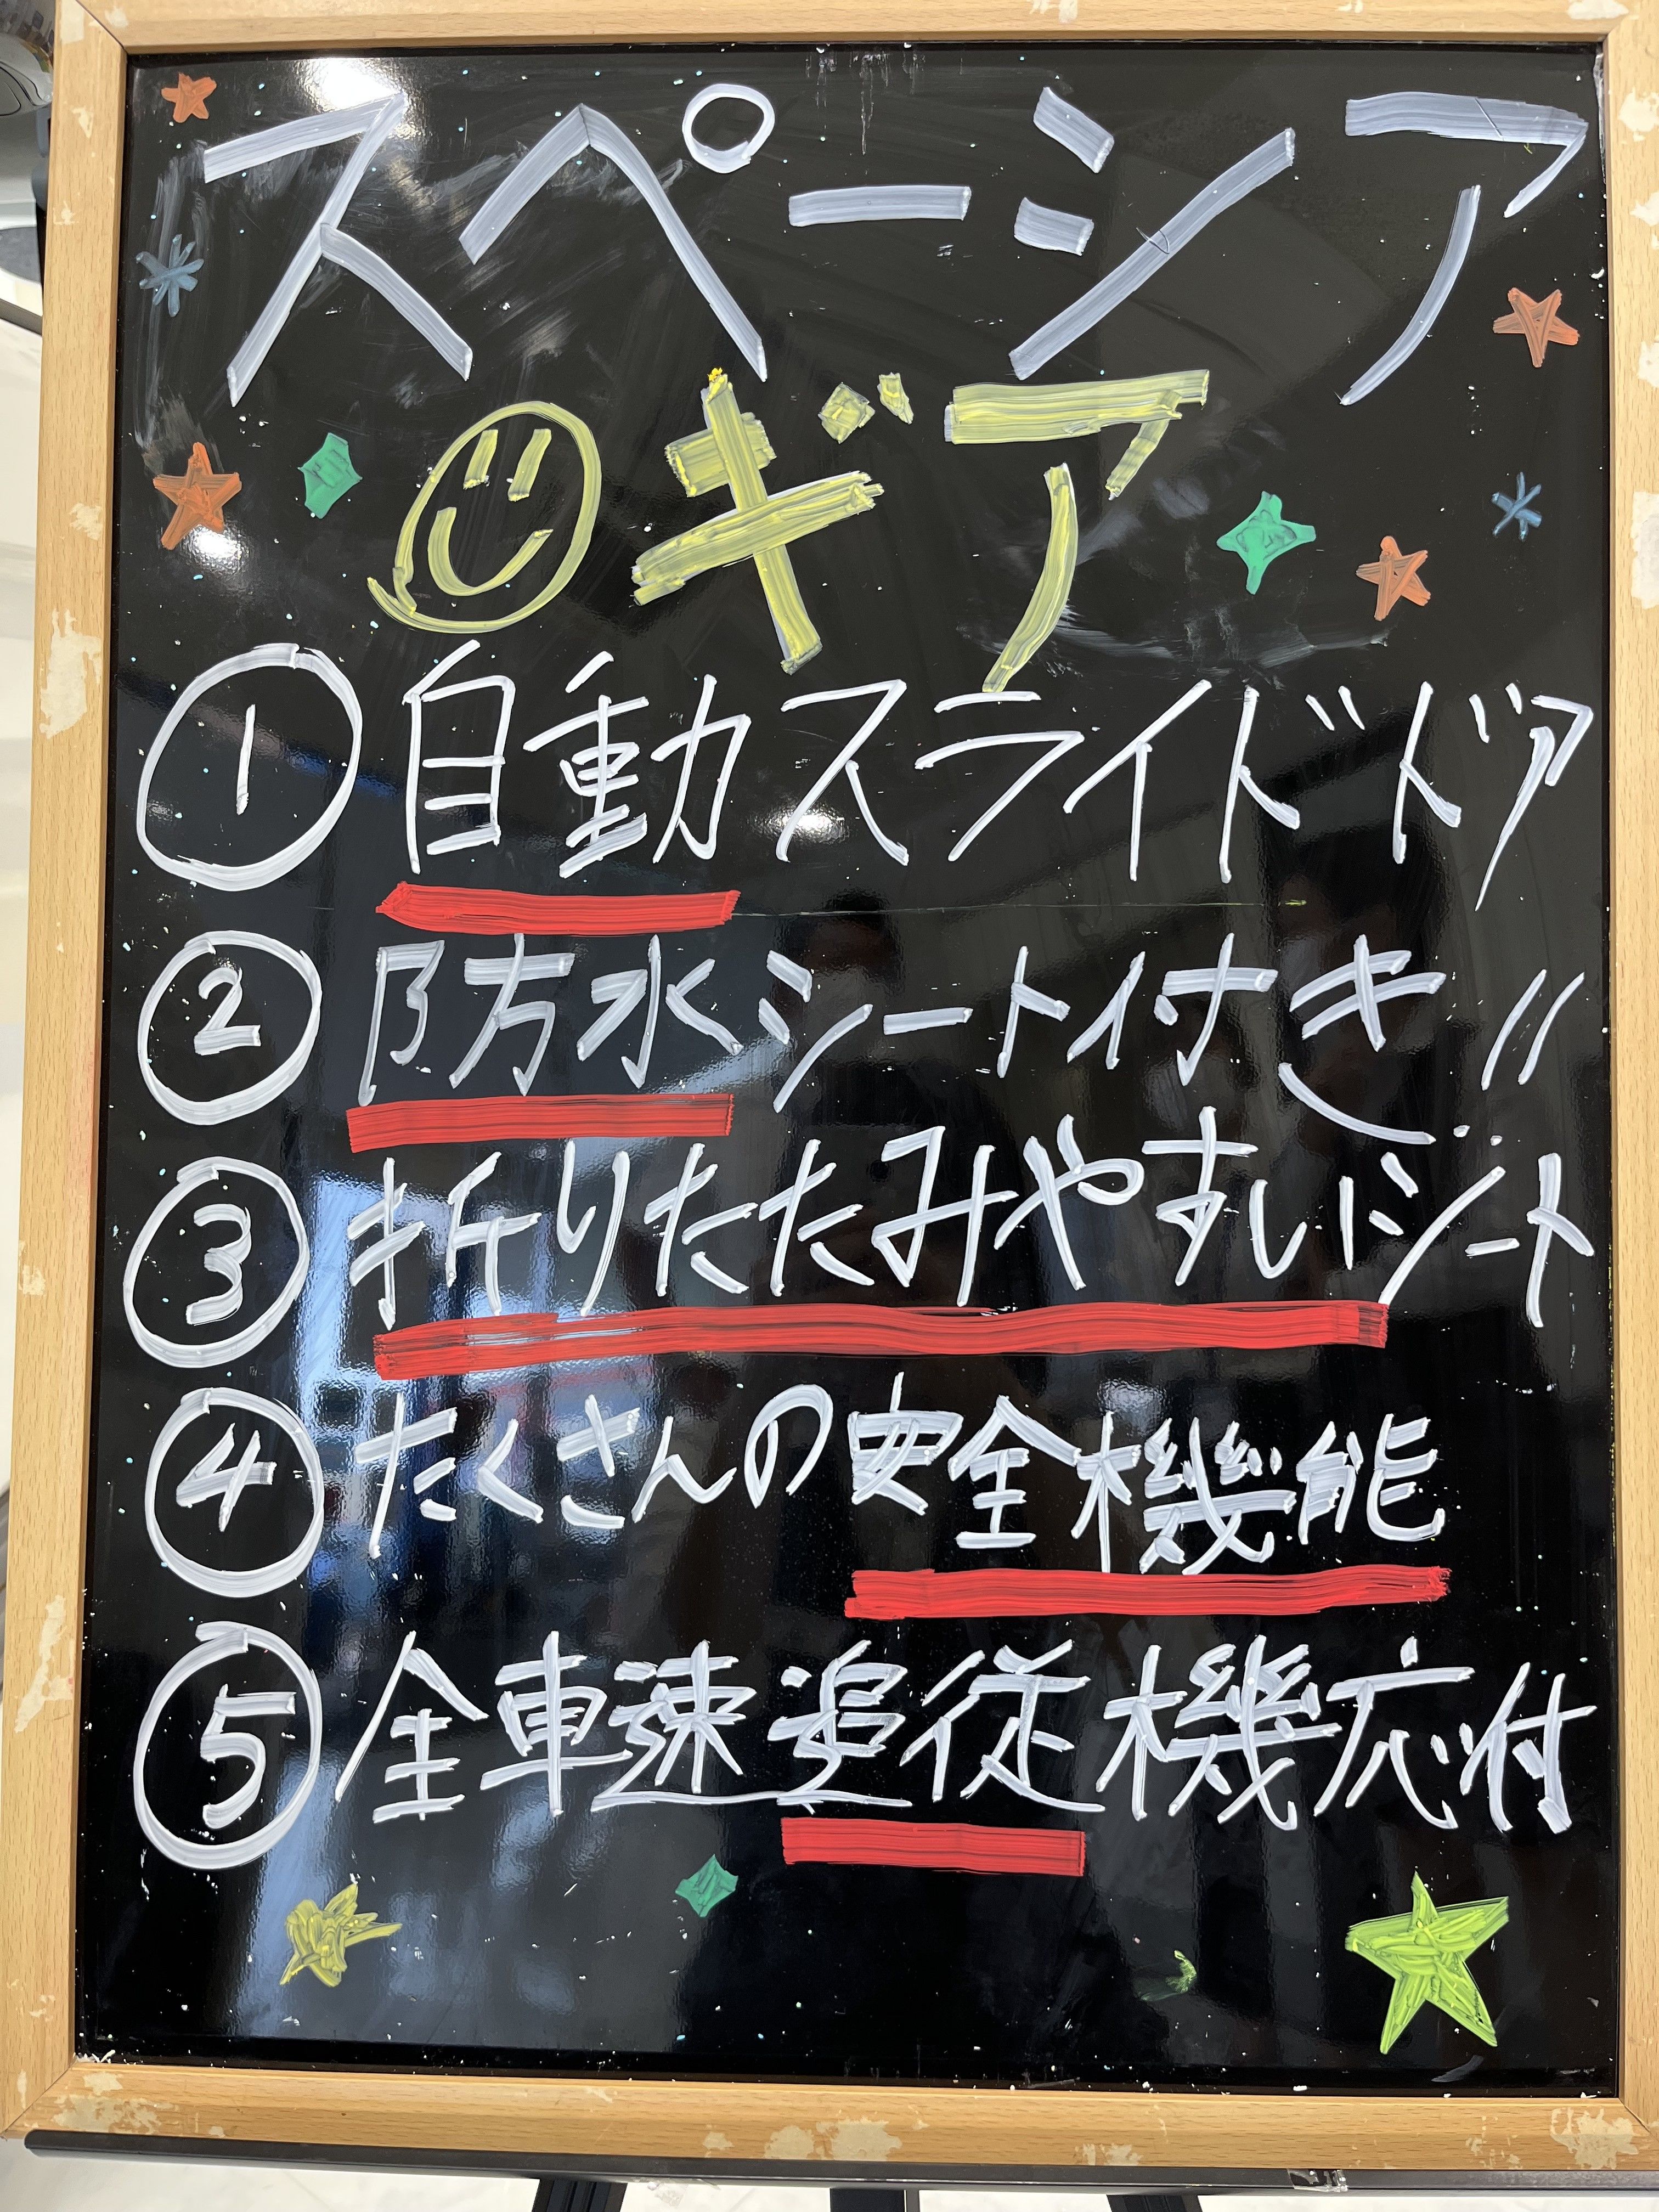 スペーシア
ギア
① 自動スライドドア
② 防水シート付き!!
③ 折りたたみやすいシート
④ たくさんの安全機能
⑤ 全車速追従機応付